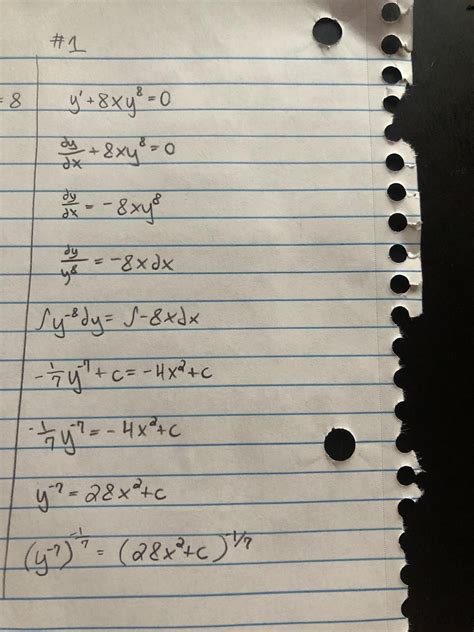 #1
= 8
y' + 8xy⁸ = 0
dy/dx + 8xy⁸ = 0
dy/dx = -8xy⁸
dy/y⁸ = -8xdx
∫y⁻⁸dy = ∫-8xdx
-1/7 y⁻⁷ + c = -4x² + c
-1/7 y⁻⁷ = -4x² + c
y⁻⁷ = 28x² + c
(y⁻⁷)^-1/7 = (28x² + c)^-1/7